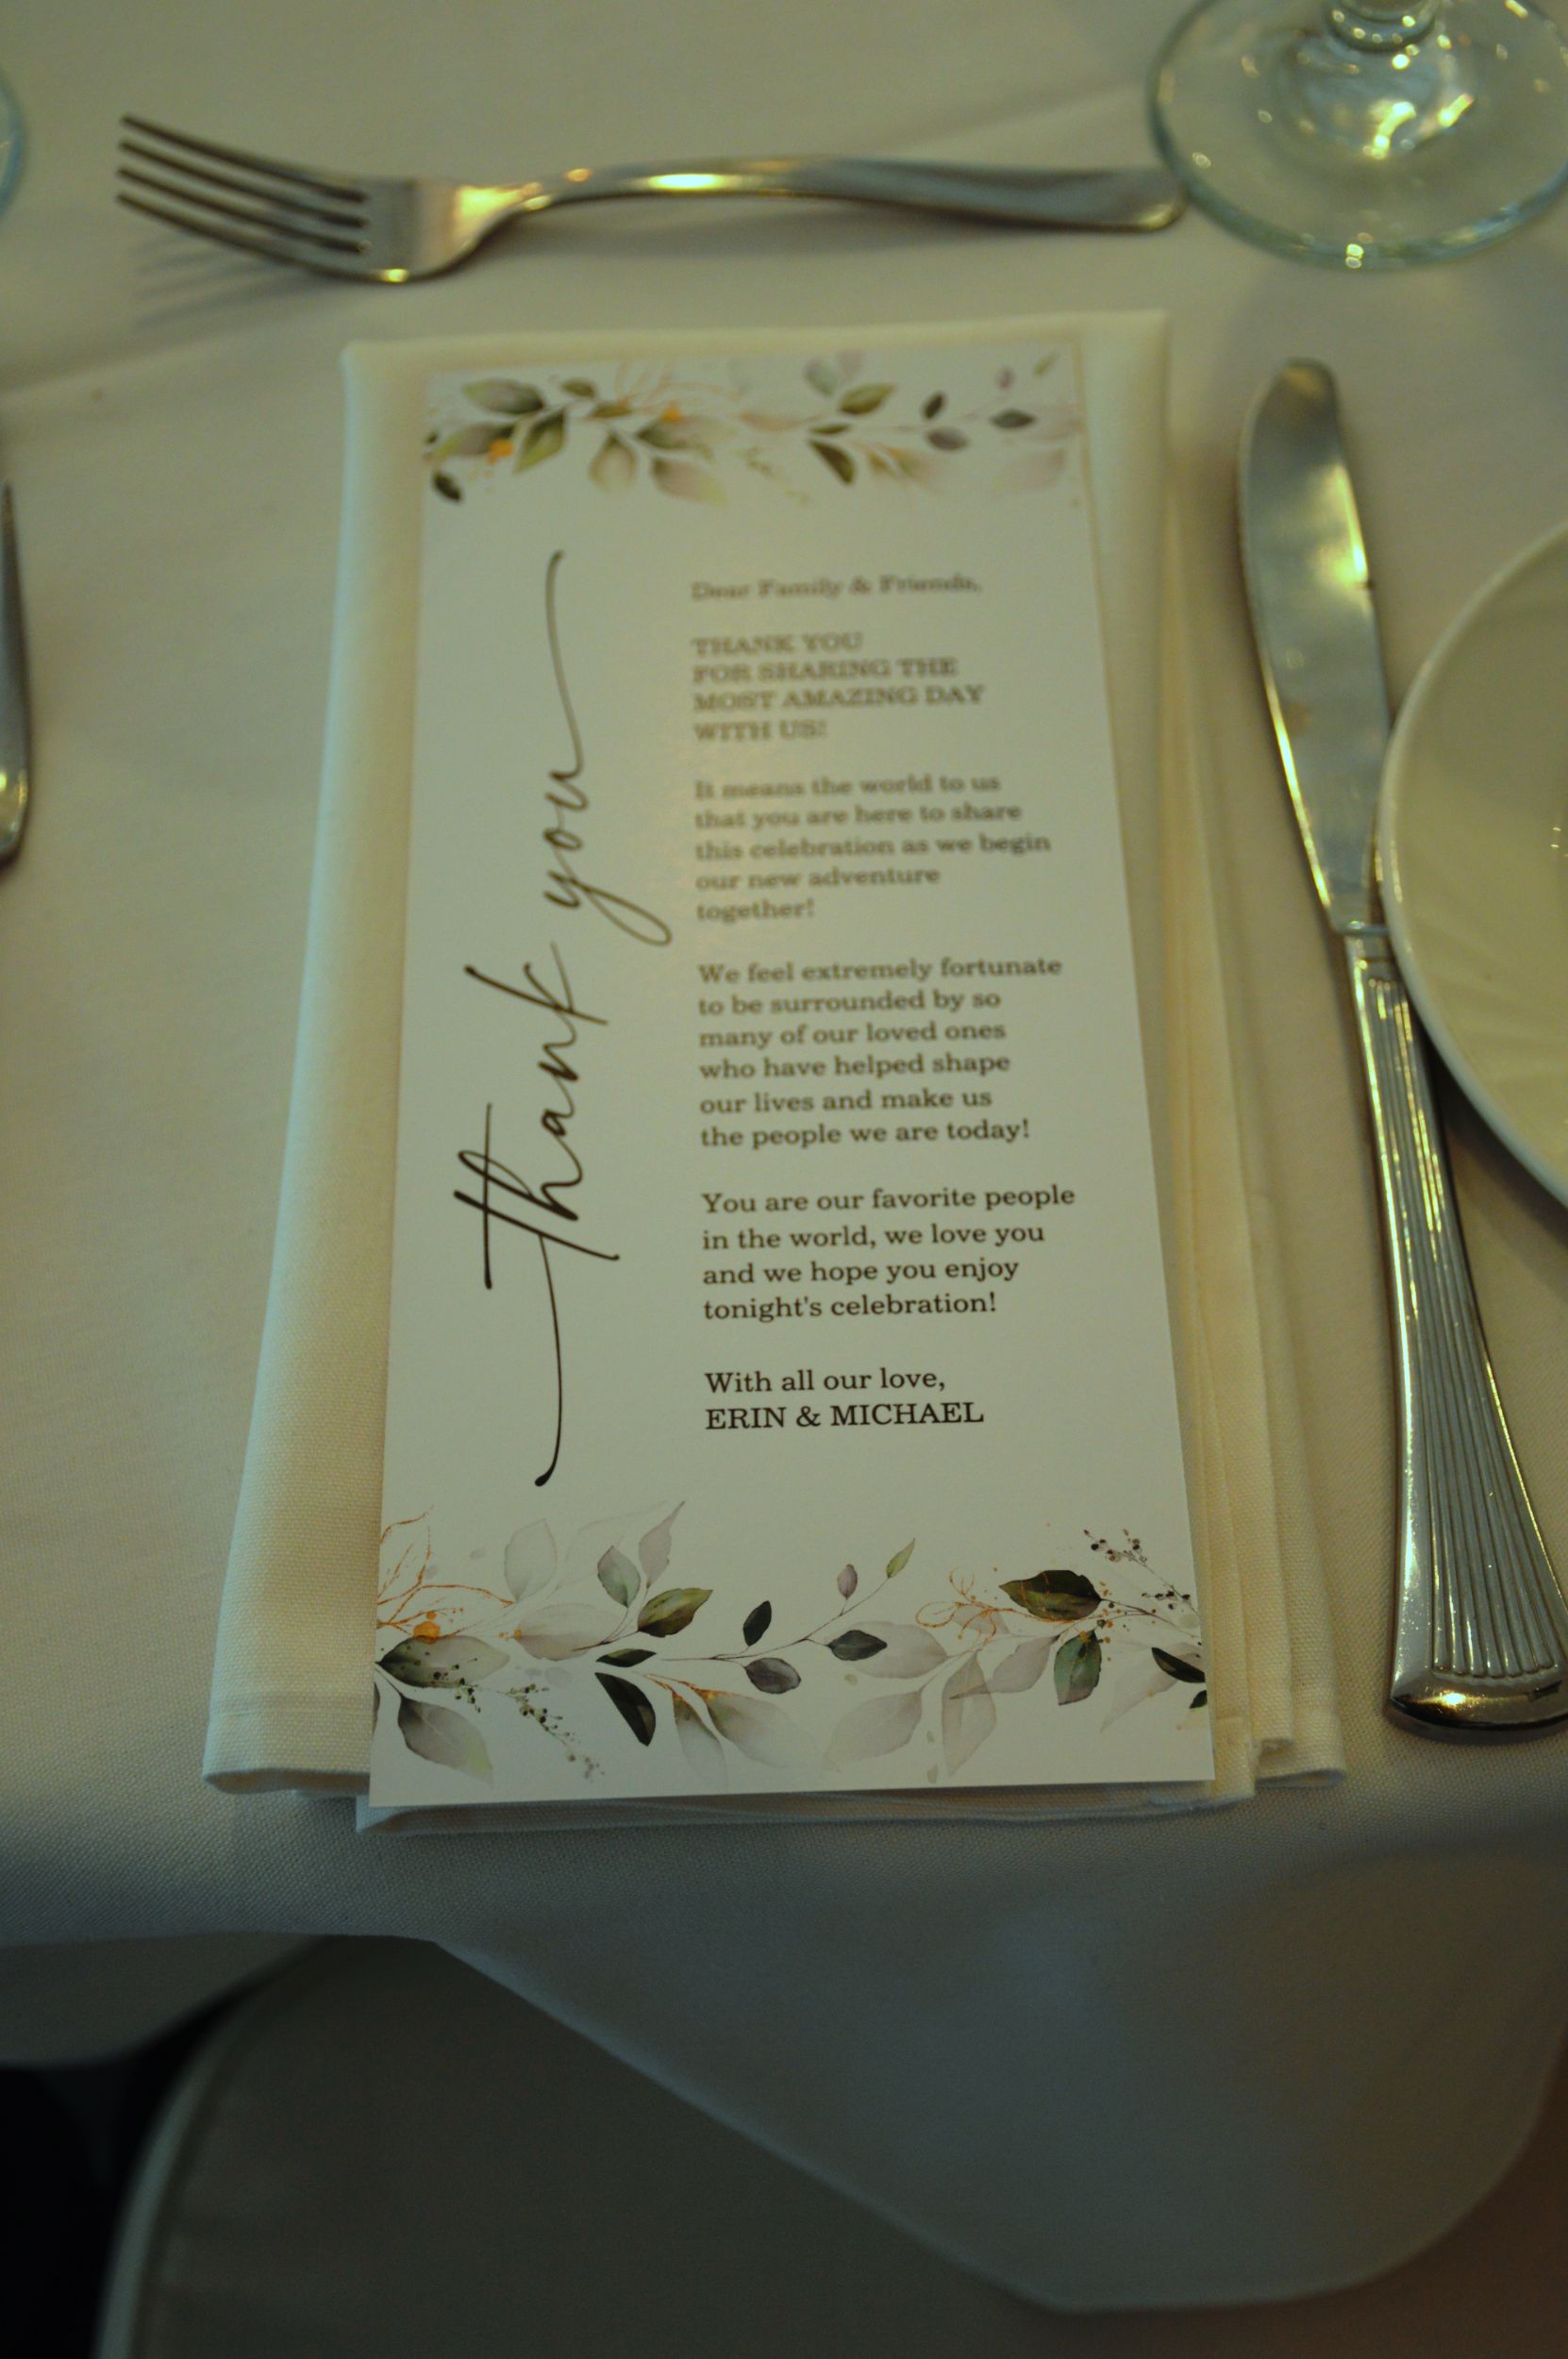 thank you
Dear Family & Friends,
THANK YOU
FOR SHARING THE
MOST AMAZING DAY
WITH US!
It means the world to us
that you are here to share
this celebration as we begin
our new adventure
together!
We feel extremely fortunate
to be surrounded by so
many of our loved ones
who have helped shape
our lives and make us
the people we are today!
You are our favorite people
in the world, we love you
and we hope you enjoy
tonight's celebration!
With all our love,
ERIN & MICHAEL